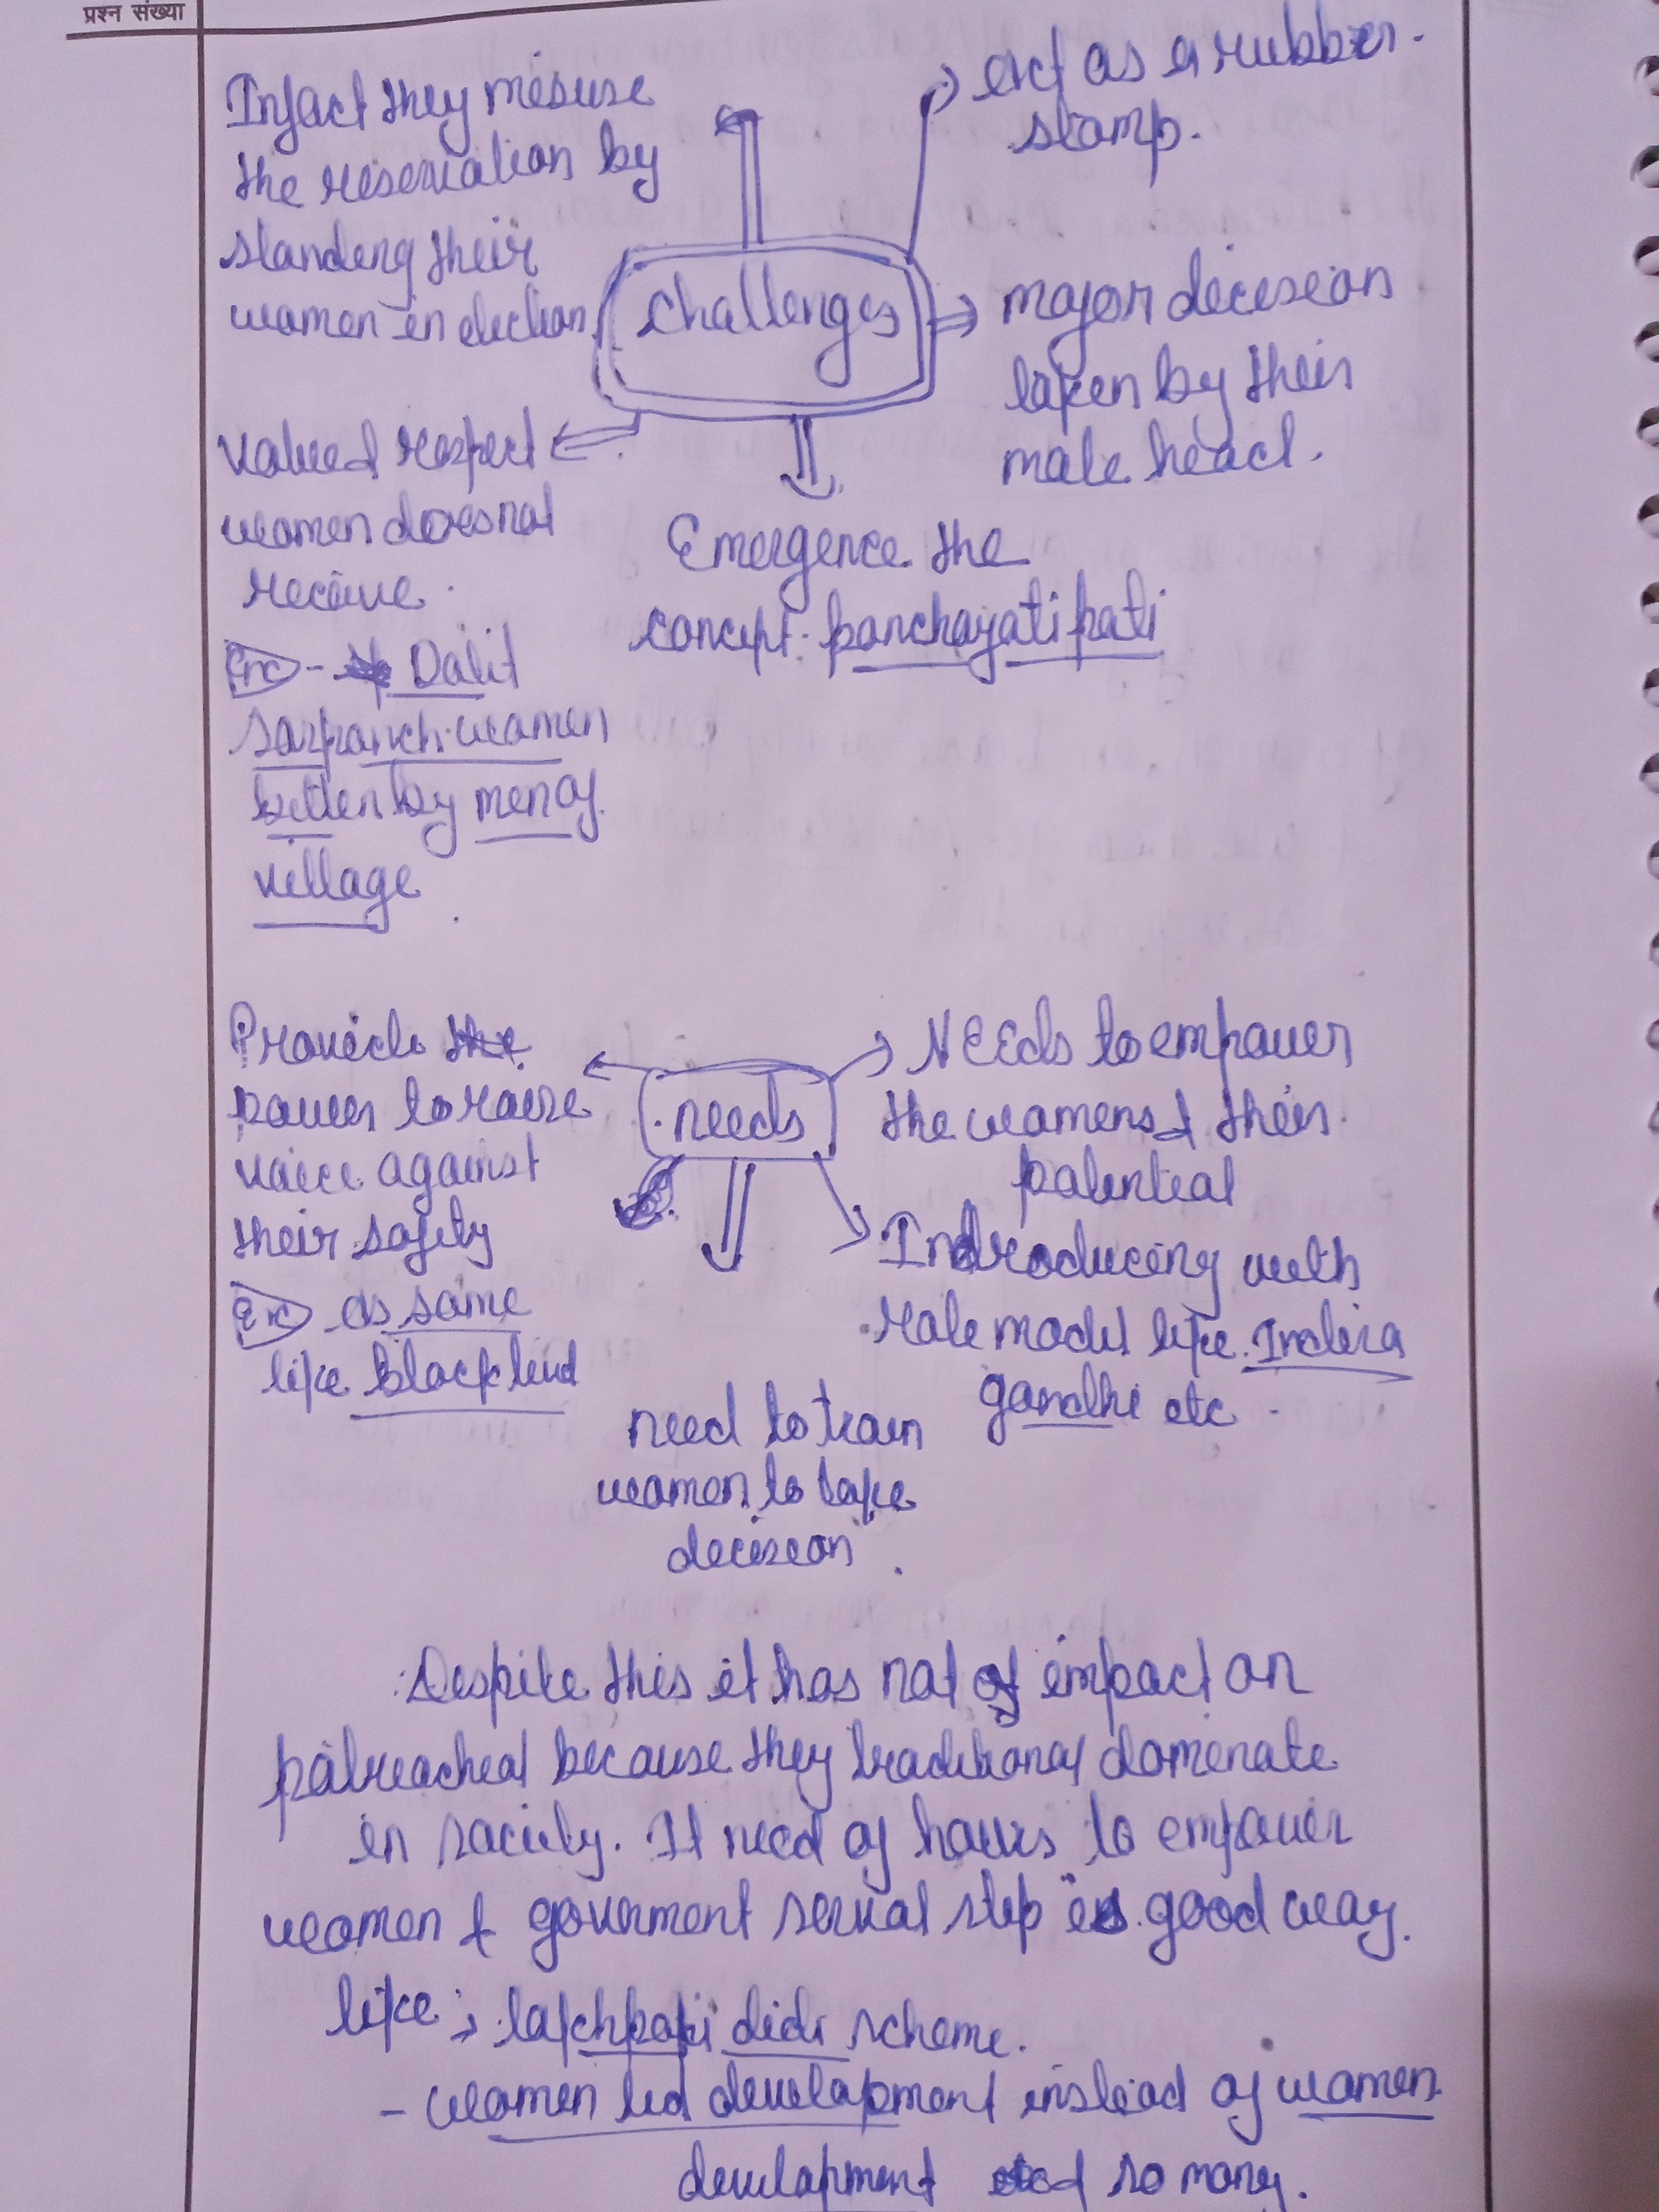 प्रश्न संख्या
Infact they misuse
the reservation by
standing their
women in election
act as a rubber
stamp.
Challenges
major decision
taken by their
male head.
valued respect
women does not
receive.
Ex - Dalit
sarpanch women
bitten by men of
village
Emergence the
concept panchayati pati
Provide the
power to raise
voice against
their safety
Ex as same
like black
needs
NEEds to empower
the womens & their
potential
Indroducing with
role model like Indira
gandhi etc.
need to train
women to take
decision.
Despite this it has not of impact on
because they traditional dominate
in society. It need of hours to empower
women & government serval step is good way.
like; lakhpati didi scheme.
- women led development instead of women
development so many.